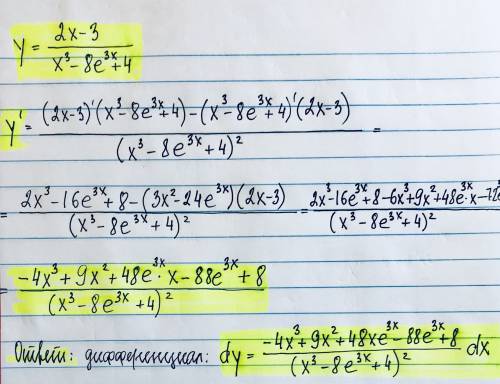 y = (2x-3)/(x³-8e³ˣ+4)
y' = ((2x-3)'(x³-8e³ˣ+4)-(x³-8e³ˣ+4)'(2x-3))/(x³-8e³ˣ+4)² =
= (2x³-16e³ˣ+8-(3x²-24e³ˣ)(2x-3))/(x³-8e³ˣ+4)² = (2x³-16e³ˣ+8-6x³+9x²+48e³ˣ·x-72e³ˣ)/(x³-8e³ˣ+4)²
= (-4x³+9x²+48e³ˣ·x-88e³ˣ+8)/(x³-8e³ˣ+4)²
Ответ: дифференциал: dy = (-4x³+9x²+48xe³ˣ-88e³ˣ+8)/(x³-8e³ˣ+4)² dx